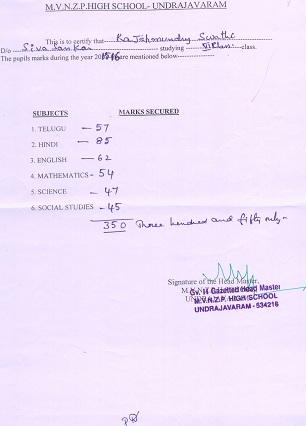 M.V.N.Z.P.HIGH SCHOOL- UNDRAJAVARAM
This is to certify that Rajahmundry Swathi
D/o Siva Sankar studying VI Class class.
The pupils marks during the year 2015-16 are mentioned below
SUBJECTS MARKS SECURED
1. TELUGU — 57
2. HINDI — 85
3. ENGLISH — 62
4. MATHEMATICS - 54
5. SCIENCE - 47
6. SOCIAL STUDIES - 45
350 Three hundred and fifty only -
Signature of the Head Master,
Gr. II Gazetted Head Master
M.V.N.Z.P. HIGH SCHOOL
UNDRAJAVARAM - 534216